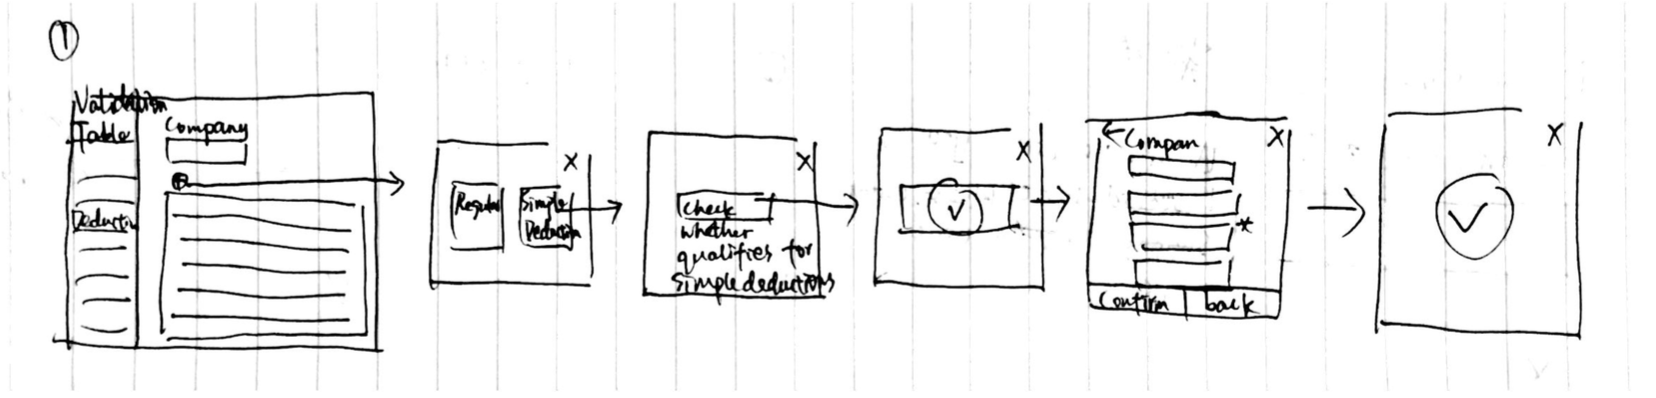 1
Validation
Table
Company
Deduction
X
Regular
Simple
Deduction
X
check
whether
qualifies for
simple deductions
X
X
Compan
*
Confirm
back
X